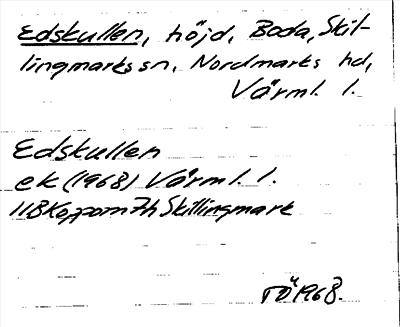 Edskullen, höjd, Boda, Skil-
lingmarks sn, Nordmarks hd,
Värml. l.
Edskullen
ek (1968) Värml. l.
11B Koppom 7h Skillingmark
TÖ 1968.